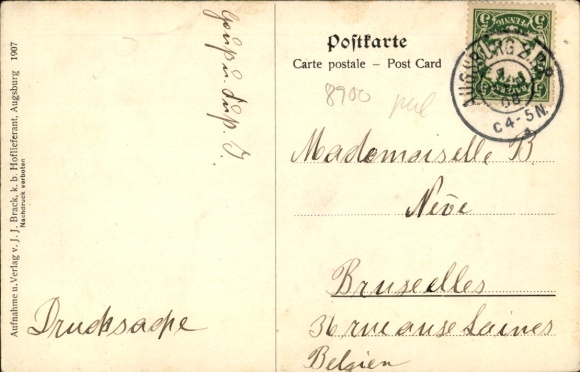 Aufnahme u. Verlag v. J. J. Brack, k. b. Hoflieferant, Augsburg 1907
Nachdruck verboten
Drucksache
Postkarte
Carte postale – Post Card
8900
5 PFENNIG 5
AUGSBURG 2. B.P.
08
C4-5N.
Mademoiselle B.
Nève
Bruxelles
36 rue
Belgien